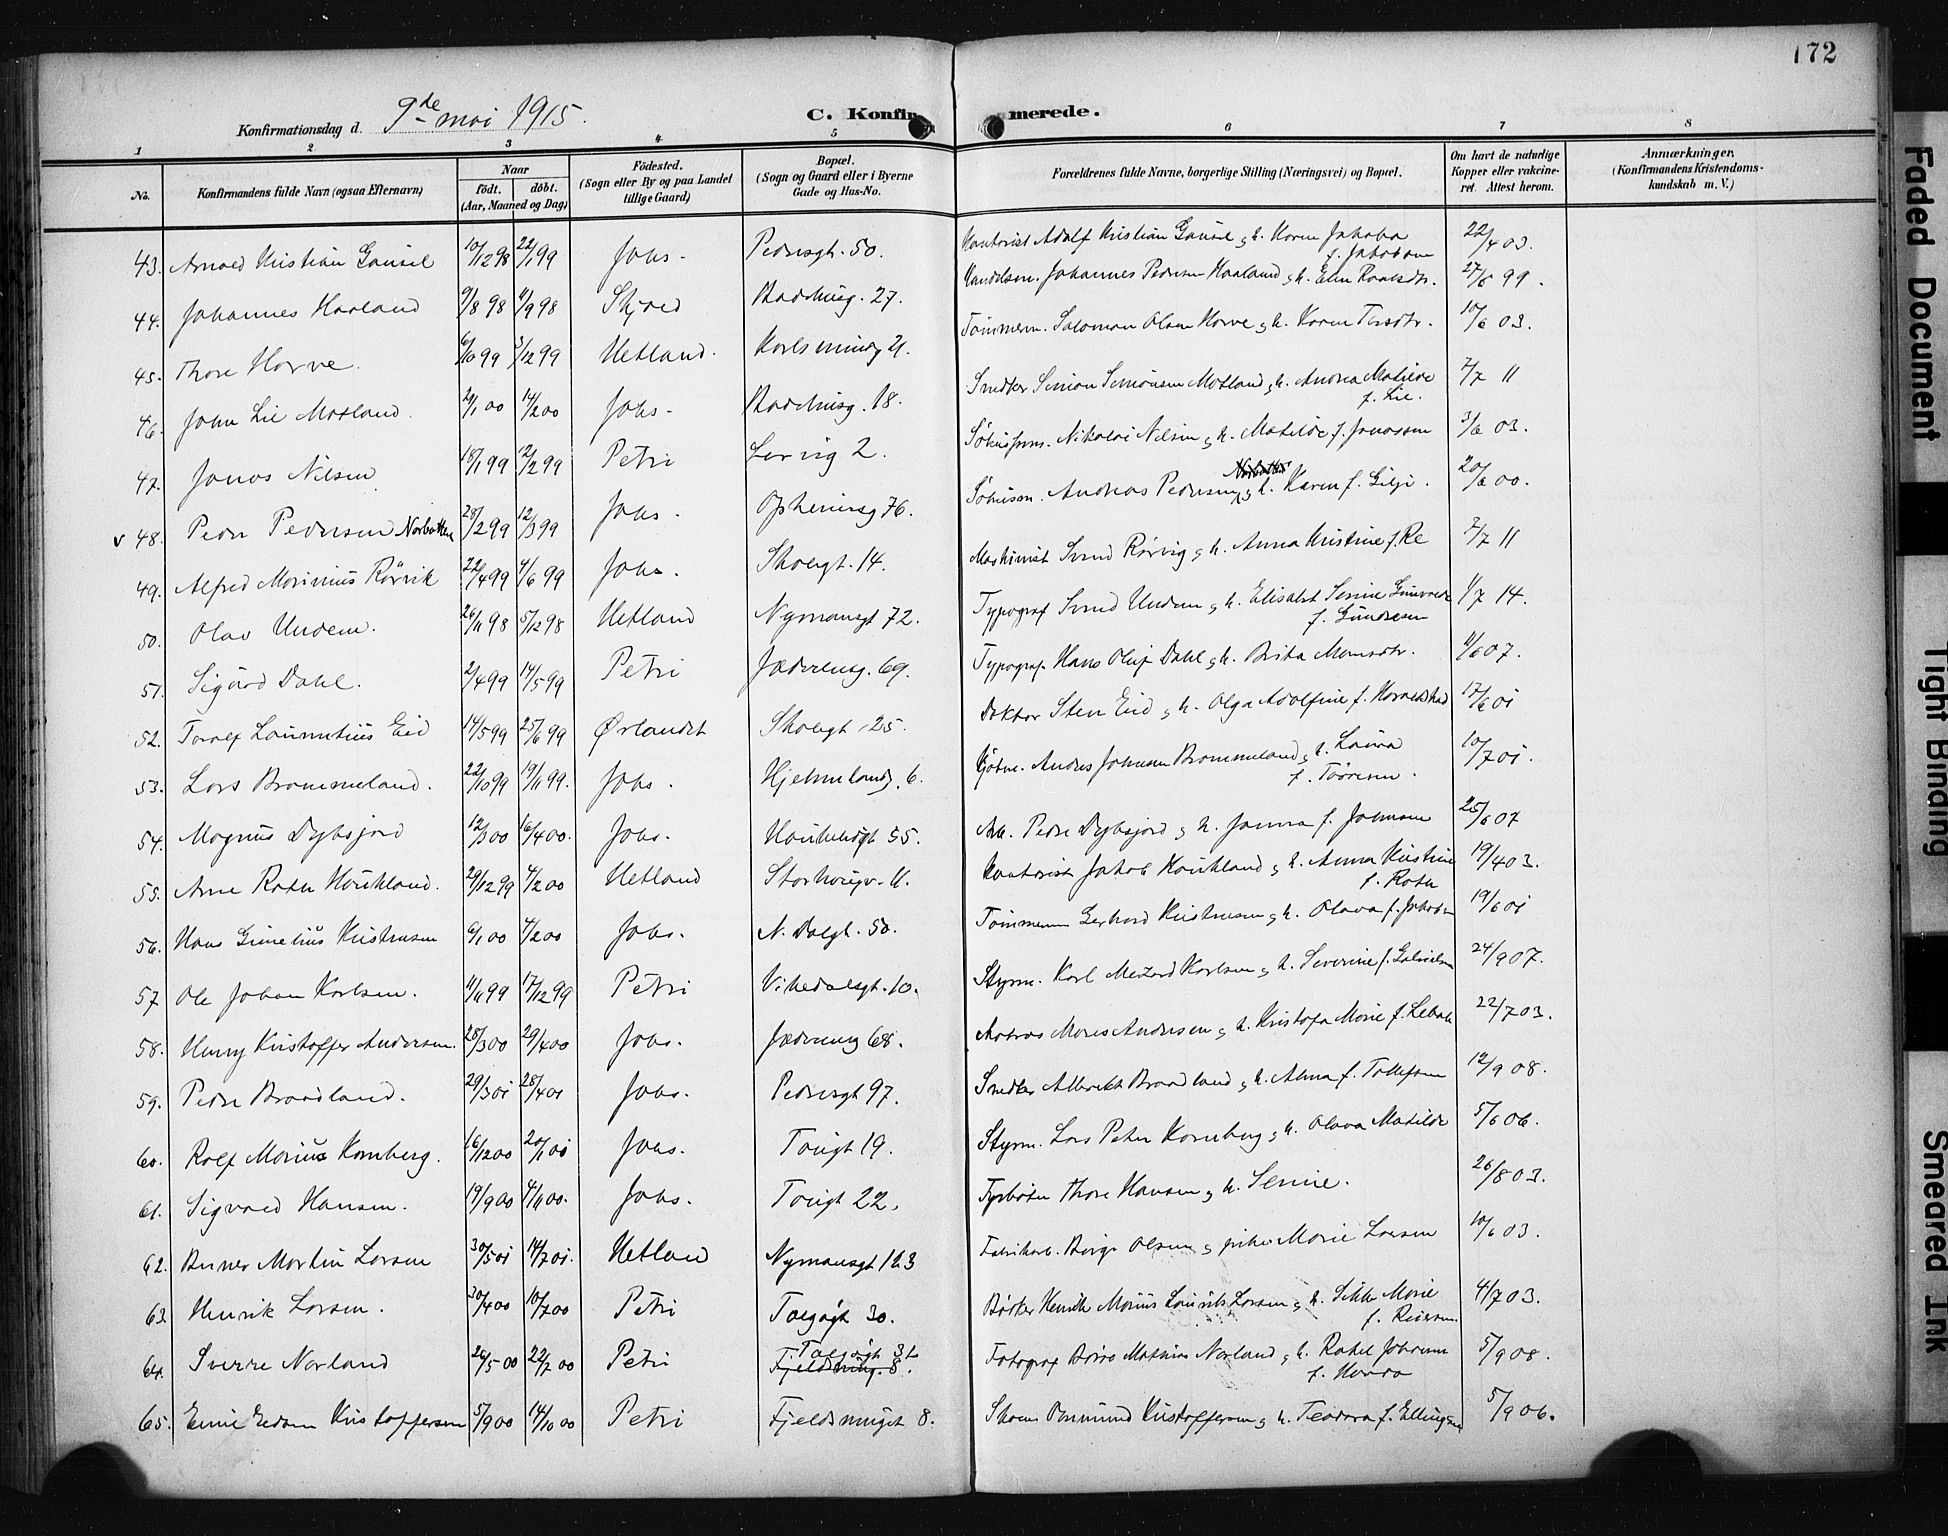 172
Konfirmationsdag d. 9de mai 1915.
C. Konfirmerede.
1 2 3 4 5 6 7 8
No.
Konfirmandens fulde Navn (ogsaa Efternavn)
Naar
født. døbt.
(Aar, Maaned og Dag)
Fødested.
(Sogn eller By og paa Landet
tillige Gaard)
Bopæl.
(Sogn og Gaard eller i Byerne
Gade og Hus-No.
Forældrenes fulde Navne, borgerlige Stilling (Næringsvei) og Bopæl.
Om havt de naturlige
Kopper eller vakcine-
ret. Attest herom.
Anmærkninger.
(Konfirmandens Kristendoms-
kundskab m. V.)
43. Arnold Kristian Gausel 10/12 98 22/1 99 Johs. Pedersgt. 50. Kontorist Adolf Kristian Gausel og h. Karen Jakoba 22/4 03.
f. Jakobsen
44. Johannes Haaland 9/8 98 4/9 98 Skjold Badehusg. 27. Handelsm. Johannes Pedersen Haaland og h. Elen 27/6 99.
45. Thore Horve. 6/10 99 3/12 99 Hetland. Karlsminneg 21. Tømmerm. Salomon Olsen Horve og h. Karen 10/6 03.
46. John Lie Motland. 29/1 00 14/2 00 Johs. Badehusg. 18. Snedker Simon Simonsen Motland og h. Andrea Matilde 7/7 11
f. Lie.
47. Jonas Nilsen 18/1 99 12/2 99 Petri Lervig 2. Nikolai Nilsen og h. Matilde f. Jonassen 3/6 03.
v 48. Peder Pedersen Norbotten 28/2 99 12/3 99 Johs. Opheimsg 76. Andreas Pedersen og h. Karen f. Gilje. 20/6 00.
49. Alfred Marinius Rørvik 22/4 99 4/6 99 Johs. Skolegt. 14. Maskinist Svend Rørvig og h. Anna Kristine f. Re 7/7 11
50. Olav Undem. 26/11 98 5/12 98 Hetland Nymansgt 72. Typograf Svend Undem og h. Elisabet Serine 1/7 14.
f. Gundersen
51. Sigurd Dahl. 2/4 99 14/5 99 Petri Jæderveig. 69. Typograf Hans Oluf Dahl og h. Brita Monsdtr. 11/6 07.
52. Toralf Laurentius Eid 14/5 99 25/6 99 Ørlandet Skolegt 25. Doktor Sten Eid og h. Olga Adolfine f. 17/6 01
53. Lars Brommeland. 22/10 99 19/11 99. Johs. Hjelmelandsg. 6. Andres Johnsen Brommeland og h. Laura 10/7 01.
f. Tøresen.
54. Magnus Dybsjord 12/3 00 16/4 00. Johs. Haukeligt 55. Arb. Peder Dybsjord og h. Janna f. Johnsen 25/6 07
55. Arne Roth Haukland. 29/12 99 4/2 00 Hetland Storhaugv. 11. Kontorist Jakob Haukland og h. Anna Kristine 19/4 03.
f. Roth
56. Hans Kristensen 6/1 00 4/2 00 Johs. N. Dalgt. 50. Tømmerm Gerhard Kristensen og h. Olava f. Jakobsen 19/6 01
57 Ole Johan Karlsen. 11/11 99 17/12 99 Petri Vikedalsgt. 10. Styrm. Karl Karlsen og h. Severine f. Gabrielsen 24/9 07.
58. Henry Kristoffer Andersen. 28/3 00 29/4 00 Johs. Jæderveg 68. Matros Andersen og h. Kristofa Marie f. 22/7 03.
59. Peder Braadland. 29/3 01 28/4 01 Johs. Pedersgt 97. Snedker Albrekt Braadland og h. Alma f. Tollefsen 12/9 08.
60. Rolf Marius Kornberg. 16/12 00 20/1 01 Johs. Taugt 19. Styrm. Lars Peter Kornberg og h. Olava Matilde 5/6 06.
61. Sigvald Hansen. 19/9 00 4/11 00. Johs. Taugt 22. Fyrbøter Thore Hansen og h. Serine. 26/8 03.
62. Berner Martin Larsen 30/5 01 14/7 01. Hetland Nymansgt 123 Fabrikarb. Børge Olsen og pike Marie Larsen 10/6 03.
63. Henrik Larsen. 30/4 00 10/7 00 Petri Tolgøgt 30. Bødker Henrik Marius Laurits Larsen og h. Marie 4/7 03.
f. Reiersen.
64. Sverre Norland 26/5 00 22/7 00 Petri Fjeldsmug. 8. Fotograf Mathias Norland og h. Rakel 5/9 08.
65. Kristoffersen 5/9 00 14/10 00 Petri Fjeldsmuget 8. Osmund Kristoffersen og h. Teodora f. Ellingsen 5/9 06.
Faded Document
Tight Binding
Smeared Ink